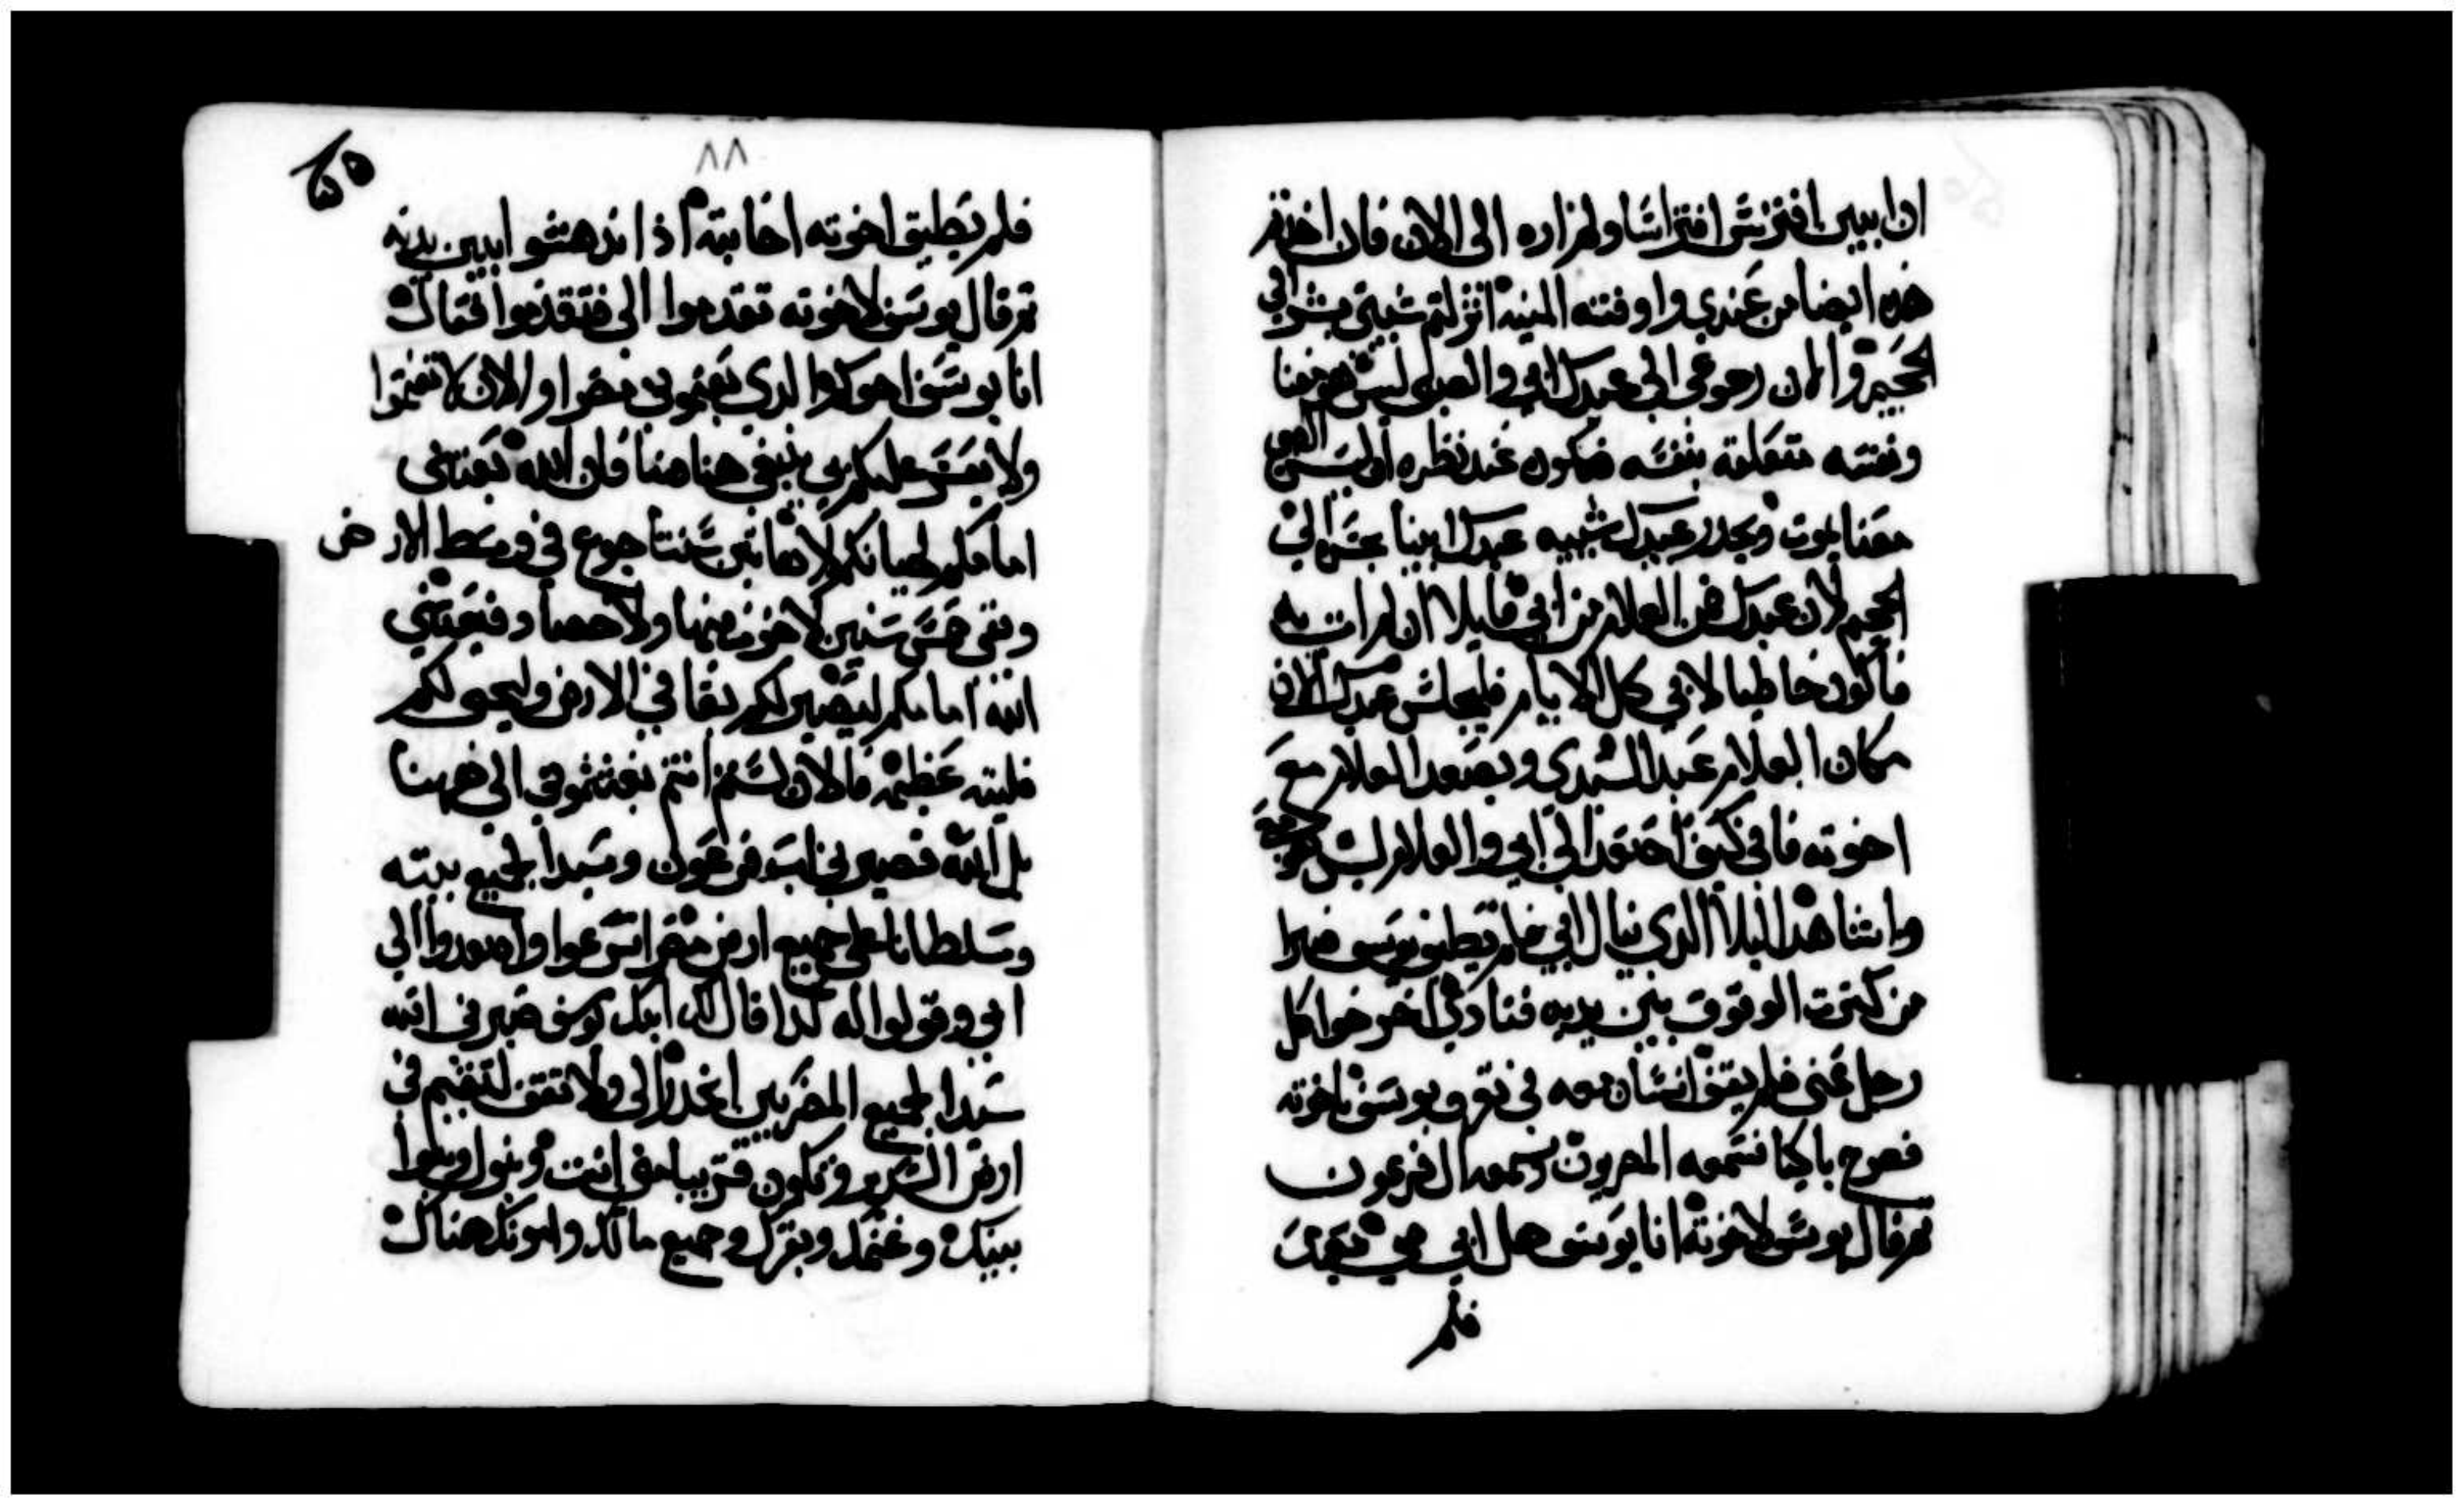 ان ابيين افترش افتراسا ولم اراه الى الان فان اخذتم
هذه ايضا من عندي واوفته المنيه انزلتم شيبتي بشر الي
الجحيم والان رجوعي الي عبدك ابي والصبي ليس هو معنا
ونفسه متعلقه بنفسه فيكون عند نظره ان ليس الصبي
معنا يموت ويحدر عبيدك شيبه عبدك ابينا بحسره الي
الجحيم لان عبدك ضمن الغلام من ابي قايلا ان لم ات به
فاكون خاطيا لابي كل الايام فليجلس عبدك الان
مكان الغلام عبدا لسيدي ويصعد الغلام مع
اخوته فاني كيف اصعد الي ابي والغلام ليس هو معي
واشاهد البلا الذي ينال ابي فلم يطيق يوسف صبرا
من كترت الوقوف بين يديه فنادي اخرجوا كل
رجل عني فلم يقف انسان معه في تعرف يوسف باخوته
فصرخ باكيا فسمعه المصريون وسمعه ال فرعون
تم قال يوسف لاخوته انا يوسف هل ابي حي بعد
فلم
٨٨
فلم تطيق اخوته اجابته اذ اندهشوا بين يديه
تم قال يوسف لاخوته تقدموا الي فتقدموا فقال
انا يوسف اخوكم الدي بعتموني مصرا والان لا تغتموا
ولا يشق عليكم بي بيعي هنا هنا فان الله بعتني
امامكم لحياتكم لان هاتين سنتا جوع في وسط الارض
وبقي خمس سنين لا حرت فيها ولا حصاد فبعتني
الله امامكم ليصير لكم بقا في الارض وليحيي لكم
فليته عظيمه فالان لستم انتم بعتموني الي هاهنا
بل الله فصيرني اب فرعون وسيدا لجميع بيته
وسلطانا علي جميع ارض مصر اسرعوا واصعدوا الي
ابي وقولوا له كدا قال لك ابنك يوسف صيرني الله
سيدا لجميع المصريين انحدر الي ولا تقف لتقيم في
ارض السدير وتكون قريبا مني انت وبنوك وبنوا
بنيك وغنمك وبقرك وجميع مالك وامونك هناك